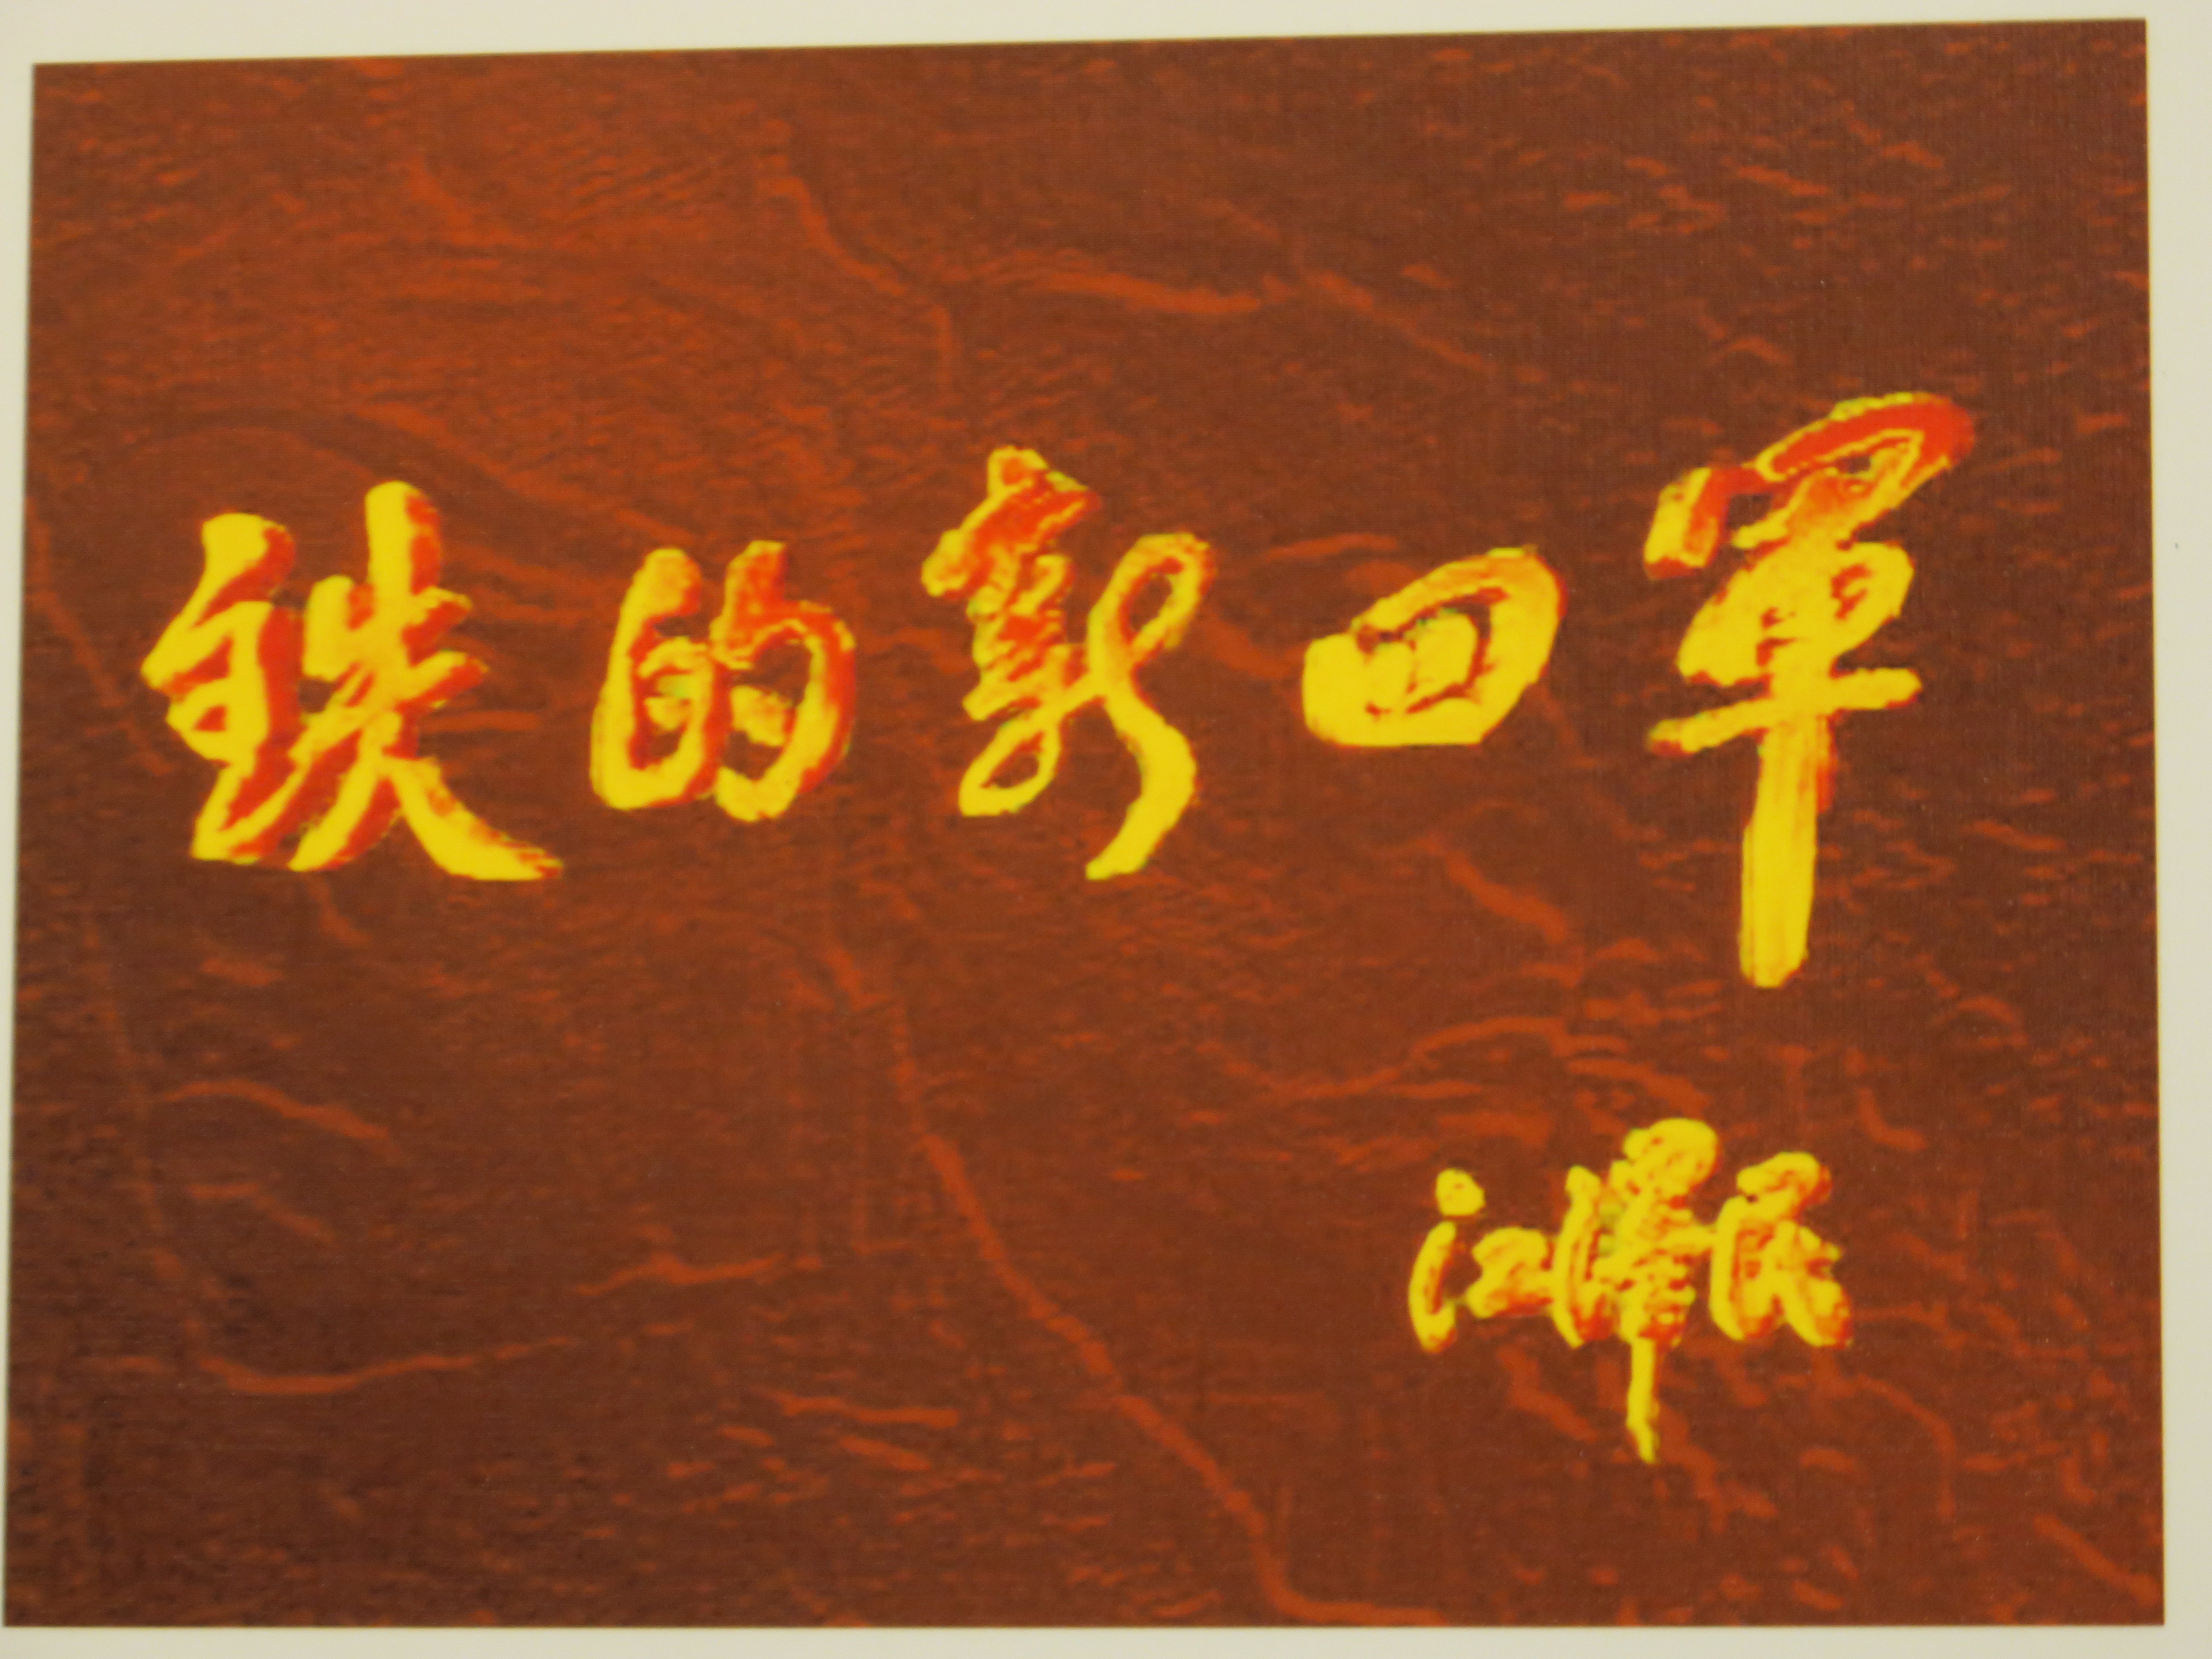 铁的新四軍
江澤民